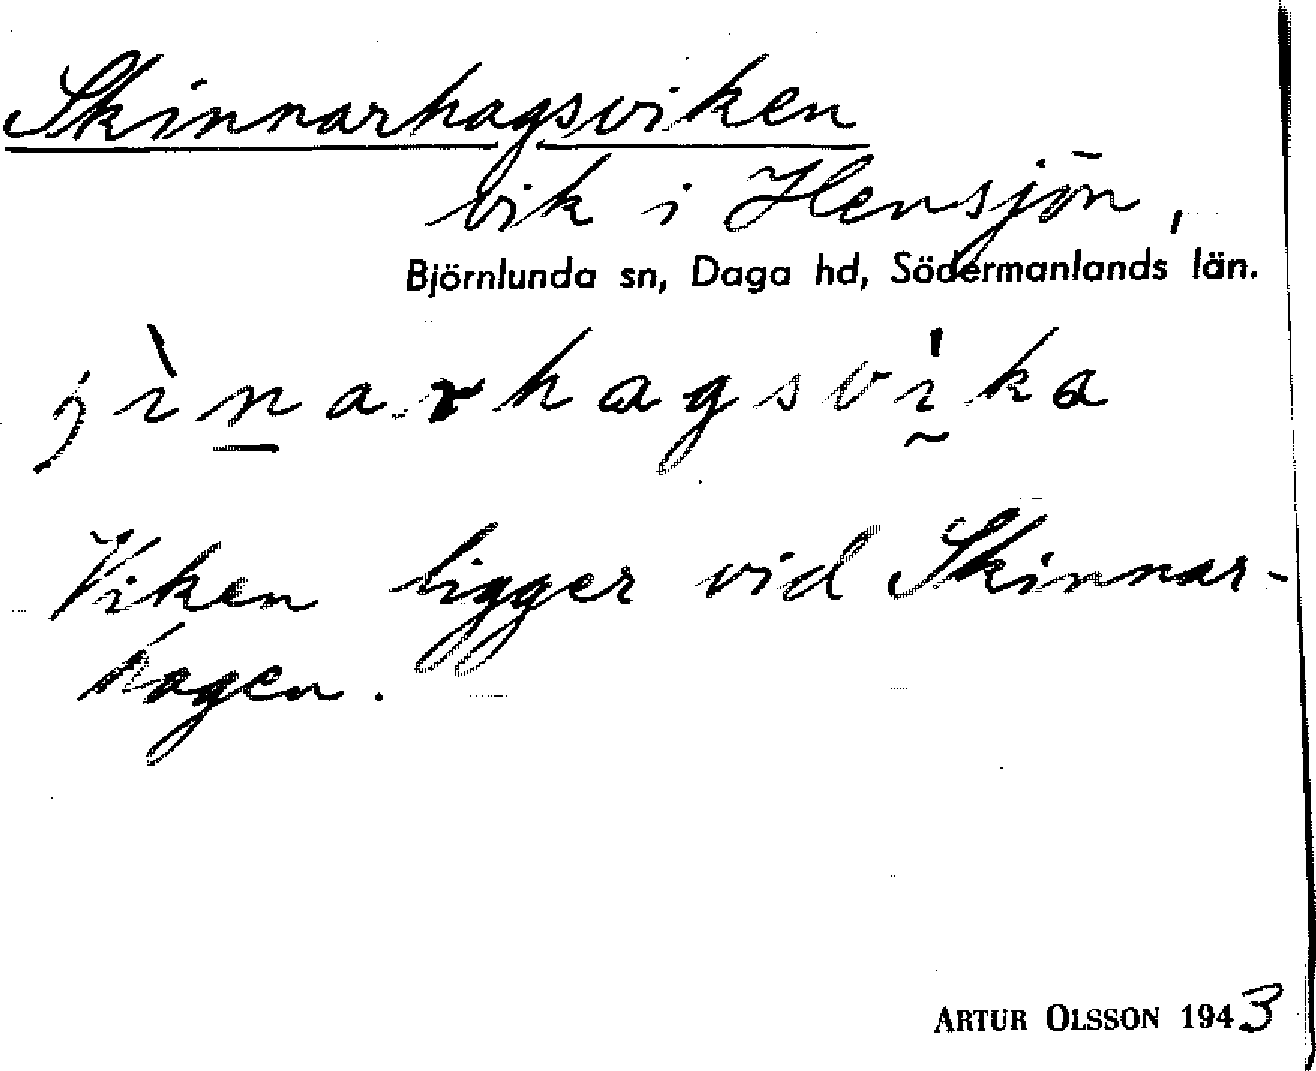 Skinnarhagsviken
vik i Hensjön,
Björnlunda sn, Daga hd, Södermanlands län.
Viken ligger vid Skinnar-
hagen.
ARTUR OLSSON 1943